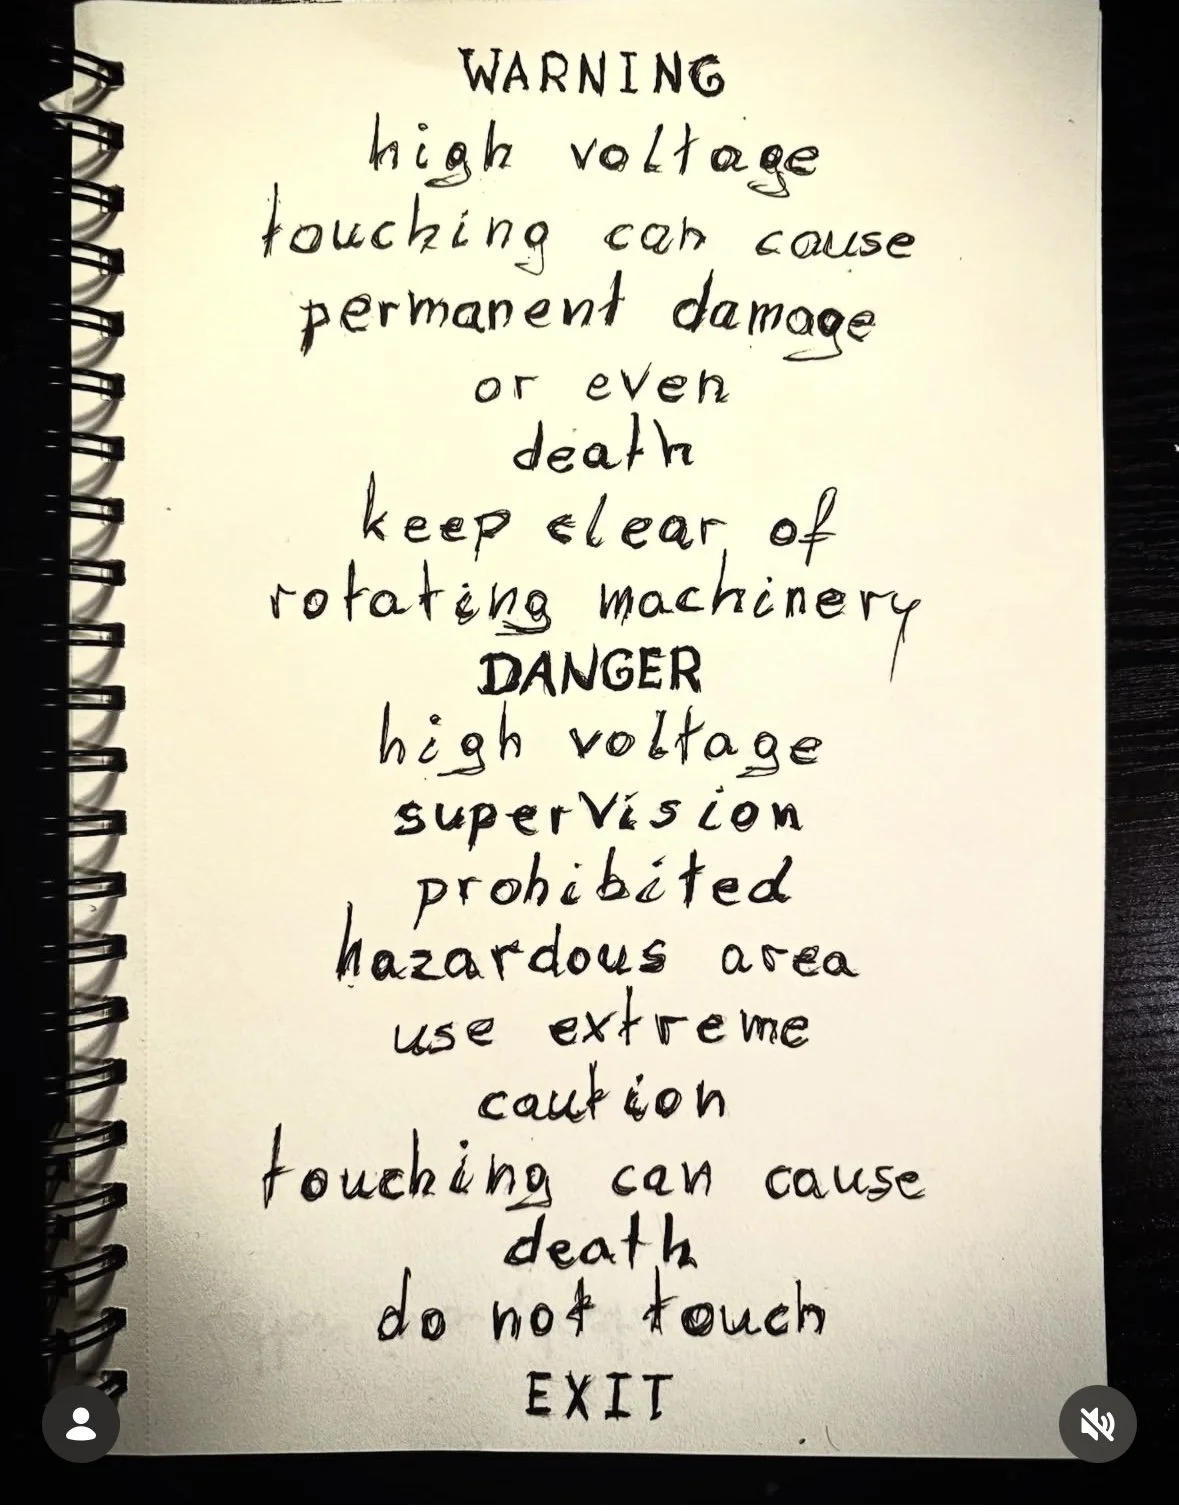 WARNING
high voltage
touching can cause
permanent damage
or even
death
keep clear of
rotating machinery
DANGER
high voltage
superVision
prohibited
hazardous area
use extreme
caution
touching can cause
death
do not touch
EXIT